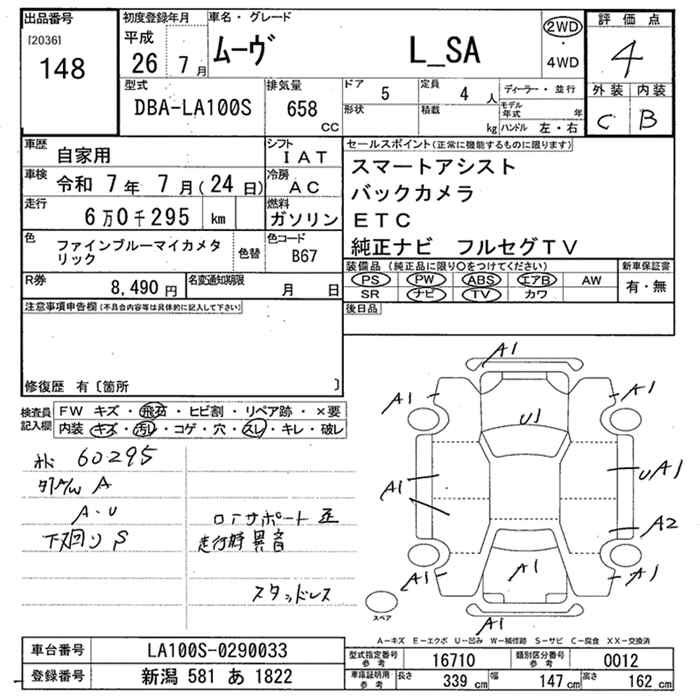 出品番号 初度登録年月 車名・グレード 評価点
[2036]
148
平成
26 7月 ムーヴ L_SA 2WD・4WD 4
型式 排気量 ドア 定員 ディーラー・並行 外装 内装
DBA-LA100S 658 cc 5 4人 C B
形状 積載 kg モデル年式 年
ハンドル 左・右
車歴 自家用 シフト IAT セールスポイント(正常に機能するものに限ります)
車検 令和 7年 7月(24日) 冷房 AC スマートアシスト
走行 6万0千295 km 燃料 ガソリン バックカメラ
ETC
色 ファインブルーマイカメタリック 色替 色コード B67 純正ナビ フルセグTV
R券 8,490円 名変通知期限 月 日 装備品(純正品に限り○をつけてください) 新車保証書
PS PW ABS エアB AW 有・無
SR ナビ TV カワ
注意事項申告欄(不具合内容等は具体的に記入して下さい) 後日品
修復歴 有〔箇所 〕
検査員記入欄 FW キズ・飛石・ヒビ割・リペア跡・×要
内装・キズ・汚レ・コゲ・穴・スレ・キレ・破レ
60295
A
A・U
下廻り S
ロアサポート歪
走行時異音
スタッドレス
A1
A1 A1
U1
A1 UA1
A2
A1 A1 A1
A1
スペア
A-キズ E-エクボ U-凹み W-補修跡 S-サビ C-腐食 XX-交換済
車台番号 LA100S-0290033 型式指定番号 参考 16710 類別区分番号 参考 0012
登録番号 新潟 581 あ 1822 車庫証明用 参考 長さ 339cm 幅 147cm 高さ 162cm